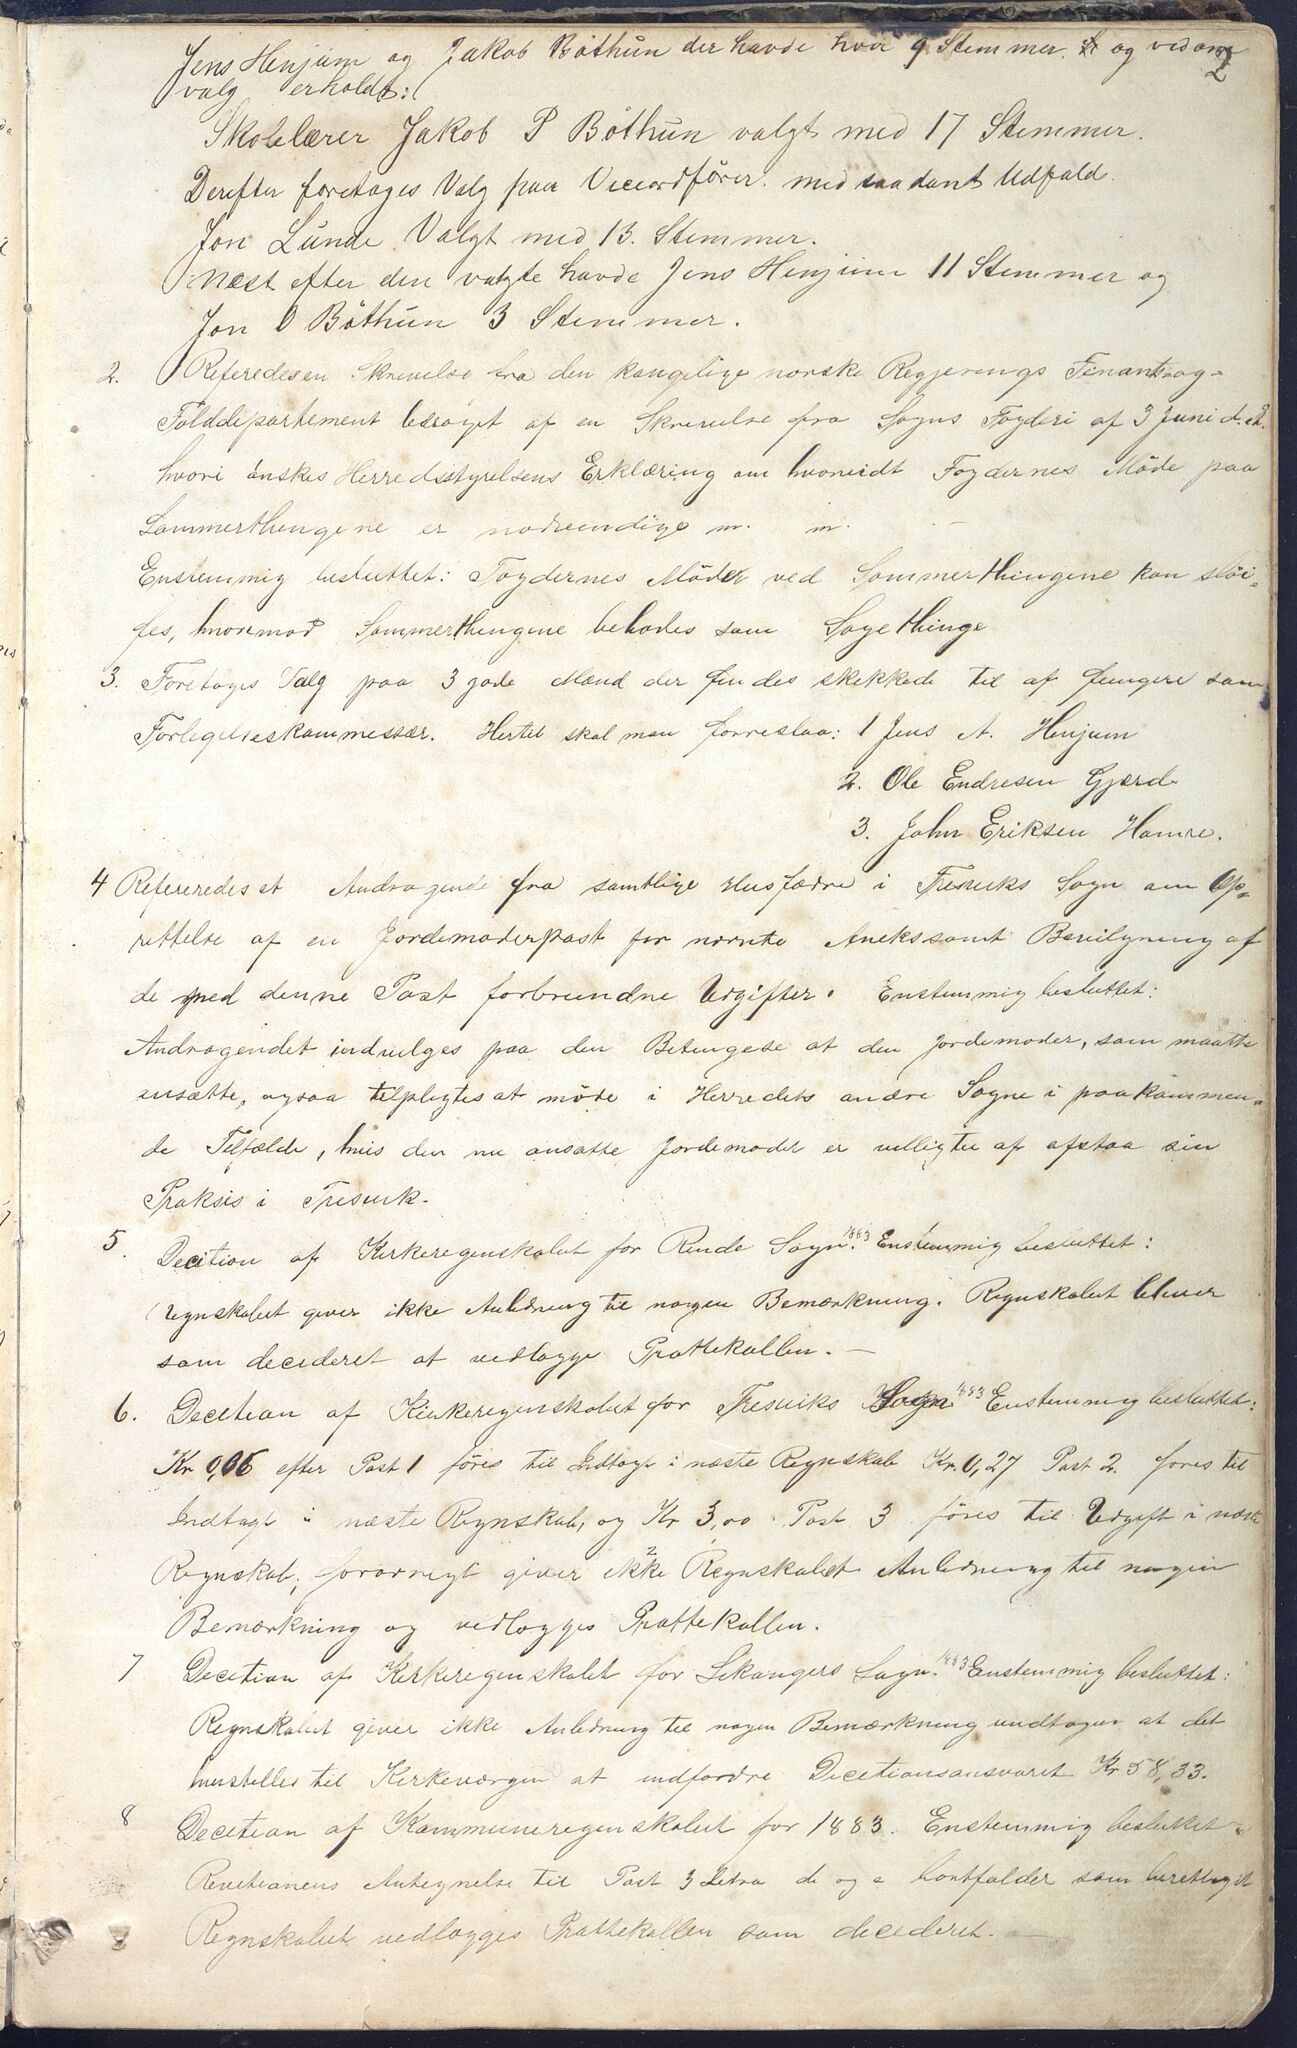 Jens Henjum og Jakob Böthun der havde hver 9 Stemmer. og ved om
2
valg erholdt:
Skolelærer Jakob P Böthun valgt med 17 Stemmer.
Derefter foretoges Valg paa Viceordförer. med saadant Udfald.
Jon Lunde Valgt med 13. Stemmer.
Næst efter den valgte havde Jens Henjum 11 Stemmer og
Jon O Böthun 3 Stemmer.
2. Referedes en Skrivelse fra den kongelige norske Regjerings Finants-og-
Tolddepartement bevaget af en Skrivelse fra Sogns Fogderi af 3 Juni d. A.
hvori önskes Herredsstyrelsens Erklæring om hvorvidt Fogdernes Möde paa
Sommerthingene er nødvendige m. m.
Enstemmig besluttet: Fogdernes Möder ved Sommerthingene kan slöi-
fes, hvorimod Sommerthingene beholdes som Sagething
3. Foretoges Valg paa 3 gode Mænd der findes skikkede til at fungere som
Forligelseskommessær. Hertil skal man forreslaa: 1 Jens A. Henjum
2. Ole Endresen Gjærde
3. John Eriksen Hamre.
4 Refereredes et Andragende fra samtlige Husfædre i Fresviks Sogn om Op-
rettelse af en Jordemoderpost for nævnte Anekssamt Bevilgning af
de med denne Post forbundne Udgifter. Enstemmig besluttet:
Andragendet indvilges paa den Betingelse at den Jordemoder, som maatte
ansætte, ogsaa tilpligtes at möde i Herredets andre Sogne i paakommen-
de Tilfælde, hvis den nu ansatte Jordemoder er velligtil at afstaa sin
Praksis i Fresvik.
5. Decition af Kirkeregenskabet for Rinde Sogn. 1883 Enstemmig besluttet:
Regnskabet giver ikke Anledning til nogen Bemærkning. Regnskabet bliver
som decideret at vedlægge Prottekollen. —
6. Decition af Kirkeregenskabet for Fresviks Sogn 1883 Enstemmig besluttet:
Kr 0,06 efter Post 1 föres til Indtægt i næste Regnskab Kr. 0,27 Post 2. föres til
Indtægt i næste Regnskab, og Kr 3,00 Post 3 föres til Udgift i næste
Regnskab, forörrigt giver ikke Regnskabet Anledning til nogen
Bemærkning og vedlægges Prottekollen.
7 Decition af Kirkeregenskabet for Leikangers Sogn. 1883 Enstemmig besluttet:
Regnskabet giver ikke Anledning til nogen Bemærkning undtagen at det
henstilles til Kirkeværgen at indfordre Decetionsansvaret Kr 58,33.
8 Decition af Kommuneregenskabet for 1883. Enstemmig besluttet
Revitionens Antegnelse til Post 3 Litra d og e bortfalder som berettiget
Regnskabet vedlægges Prottekollen som decideret. —